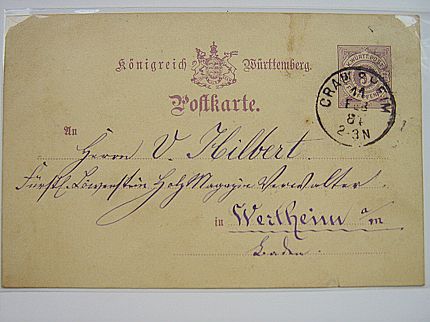 Königreich Württemberg.
Postkarte.
CRAILSHEIM
11
FEB
81
2-3N
An
Herrn V. Hilbert.
Fürstl. Löwenstein Holz Magazin Verwalter
in Wertheim a/m
Baden.